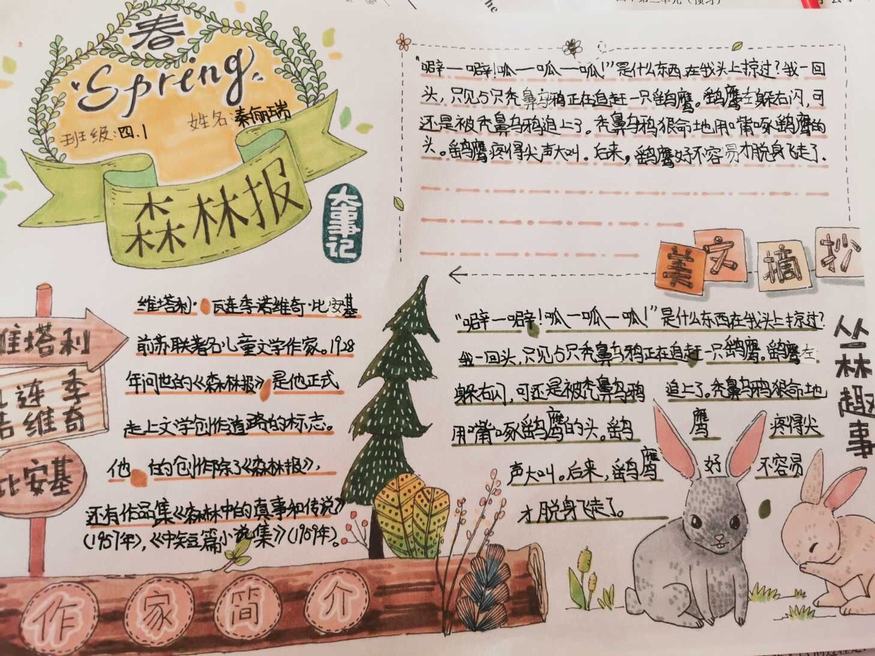 春
Spring
班级:四.1 姓名:秦俪瑞
森林报
大事记
"噼一噼!呱一呱一呱!"是什么东西在我头上掠过?我一回
头,只见5只秃鼻乌鸦正在追赶一只鹞鹰。鹞鹰左躲右闪,可
还是被秃鼻乌鸦追上了。秃鼻乌鸦狠命地用嘴啄鹞鹰的
头。鹞鹰疼得尖声大叫。后来,鹞鹰好不容易才脱身飞走了.
美文摘抄
维塔利
连季
诺维奇
比安基
维塔利·瓦连季诺维奇·比安基
前苏联著名儿童文学作家。1928
年问世的《森林报》是他正式
走上文学创作道路的标志。
他的创作除了《森林报》,
还有作品集《森林中的真事和传说》
(1957年),《中短篇小说集》(1959年)。
作家简介
"噼一噼!呱一呱一呱!"是什么东西在我头上掠过?
我一回头,只见5只秃鼻乌鸦正在追赶一只鹞鹰。鹞鹰左
躲右闪,可还是被秃鼻乌鸦追上了。秃鼻乌鸦狠命地
用嘴啄鹞鹰的头。鹞鹰疼得尖
声大叫。后来,鹞鹰好不容易
才脱身飞走了。
丛林趣事